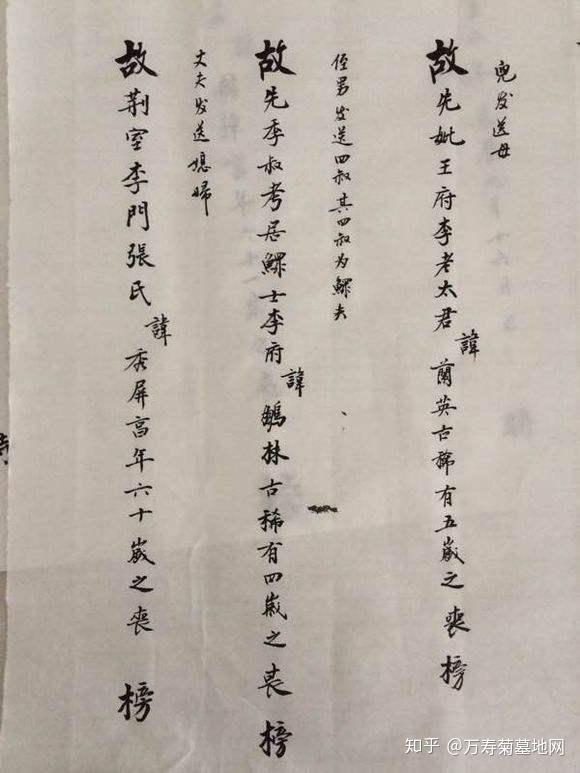 兒发送母
故先妣王府李老太君諱蘭英古稀有五歲之喪榜
侄男发送四叔其四叔为鳏夫
故先季叔考居鳏士李府諱鶴林古稀有四歲之喪榜
丈夫发送媳婦
故荆室李門張氏諱秀屏高年六十歲之喪榜
知乎 @万寿菊墓地网